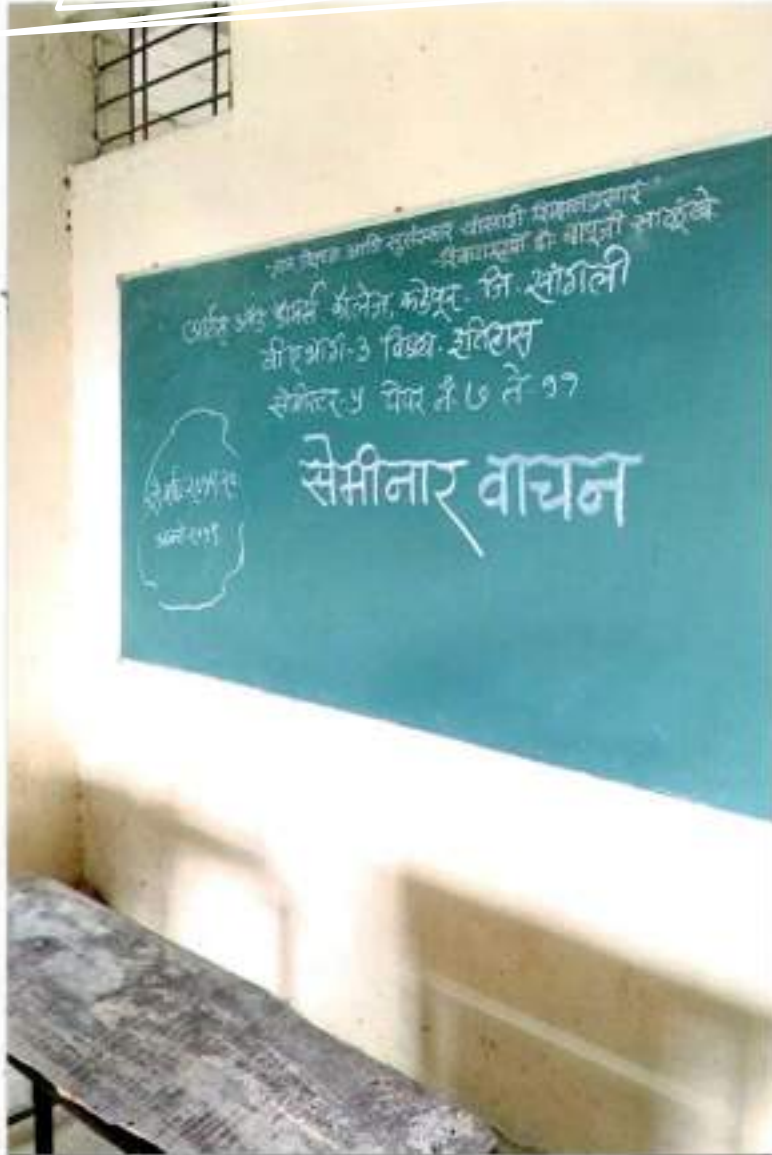 "ज्ञान विज्ञान आणि सुसंस्कार यांसाठी शिक्षणप्रसार"
शिक्षणमहर्षी डॉ बापूजी साळुंखे
आर्टस् अँण्ड कॉमर्स कॉलेज, कडेपूर. जि. सांगली
बी ए भाग-३ विषय- इतिहास
सेमीस्टर-५ पेपर नं. ७ ते ११
सेमीनार वाचन